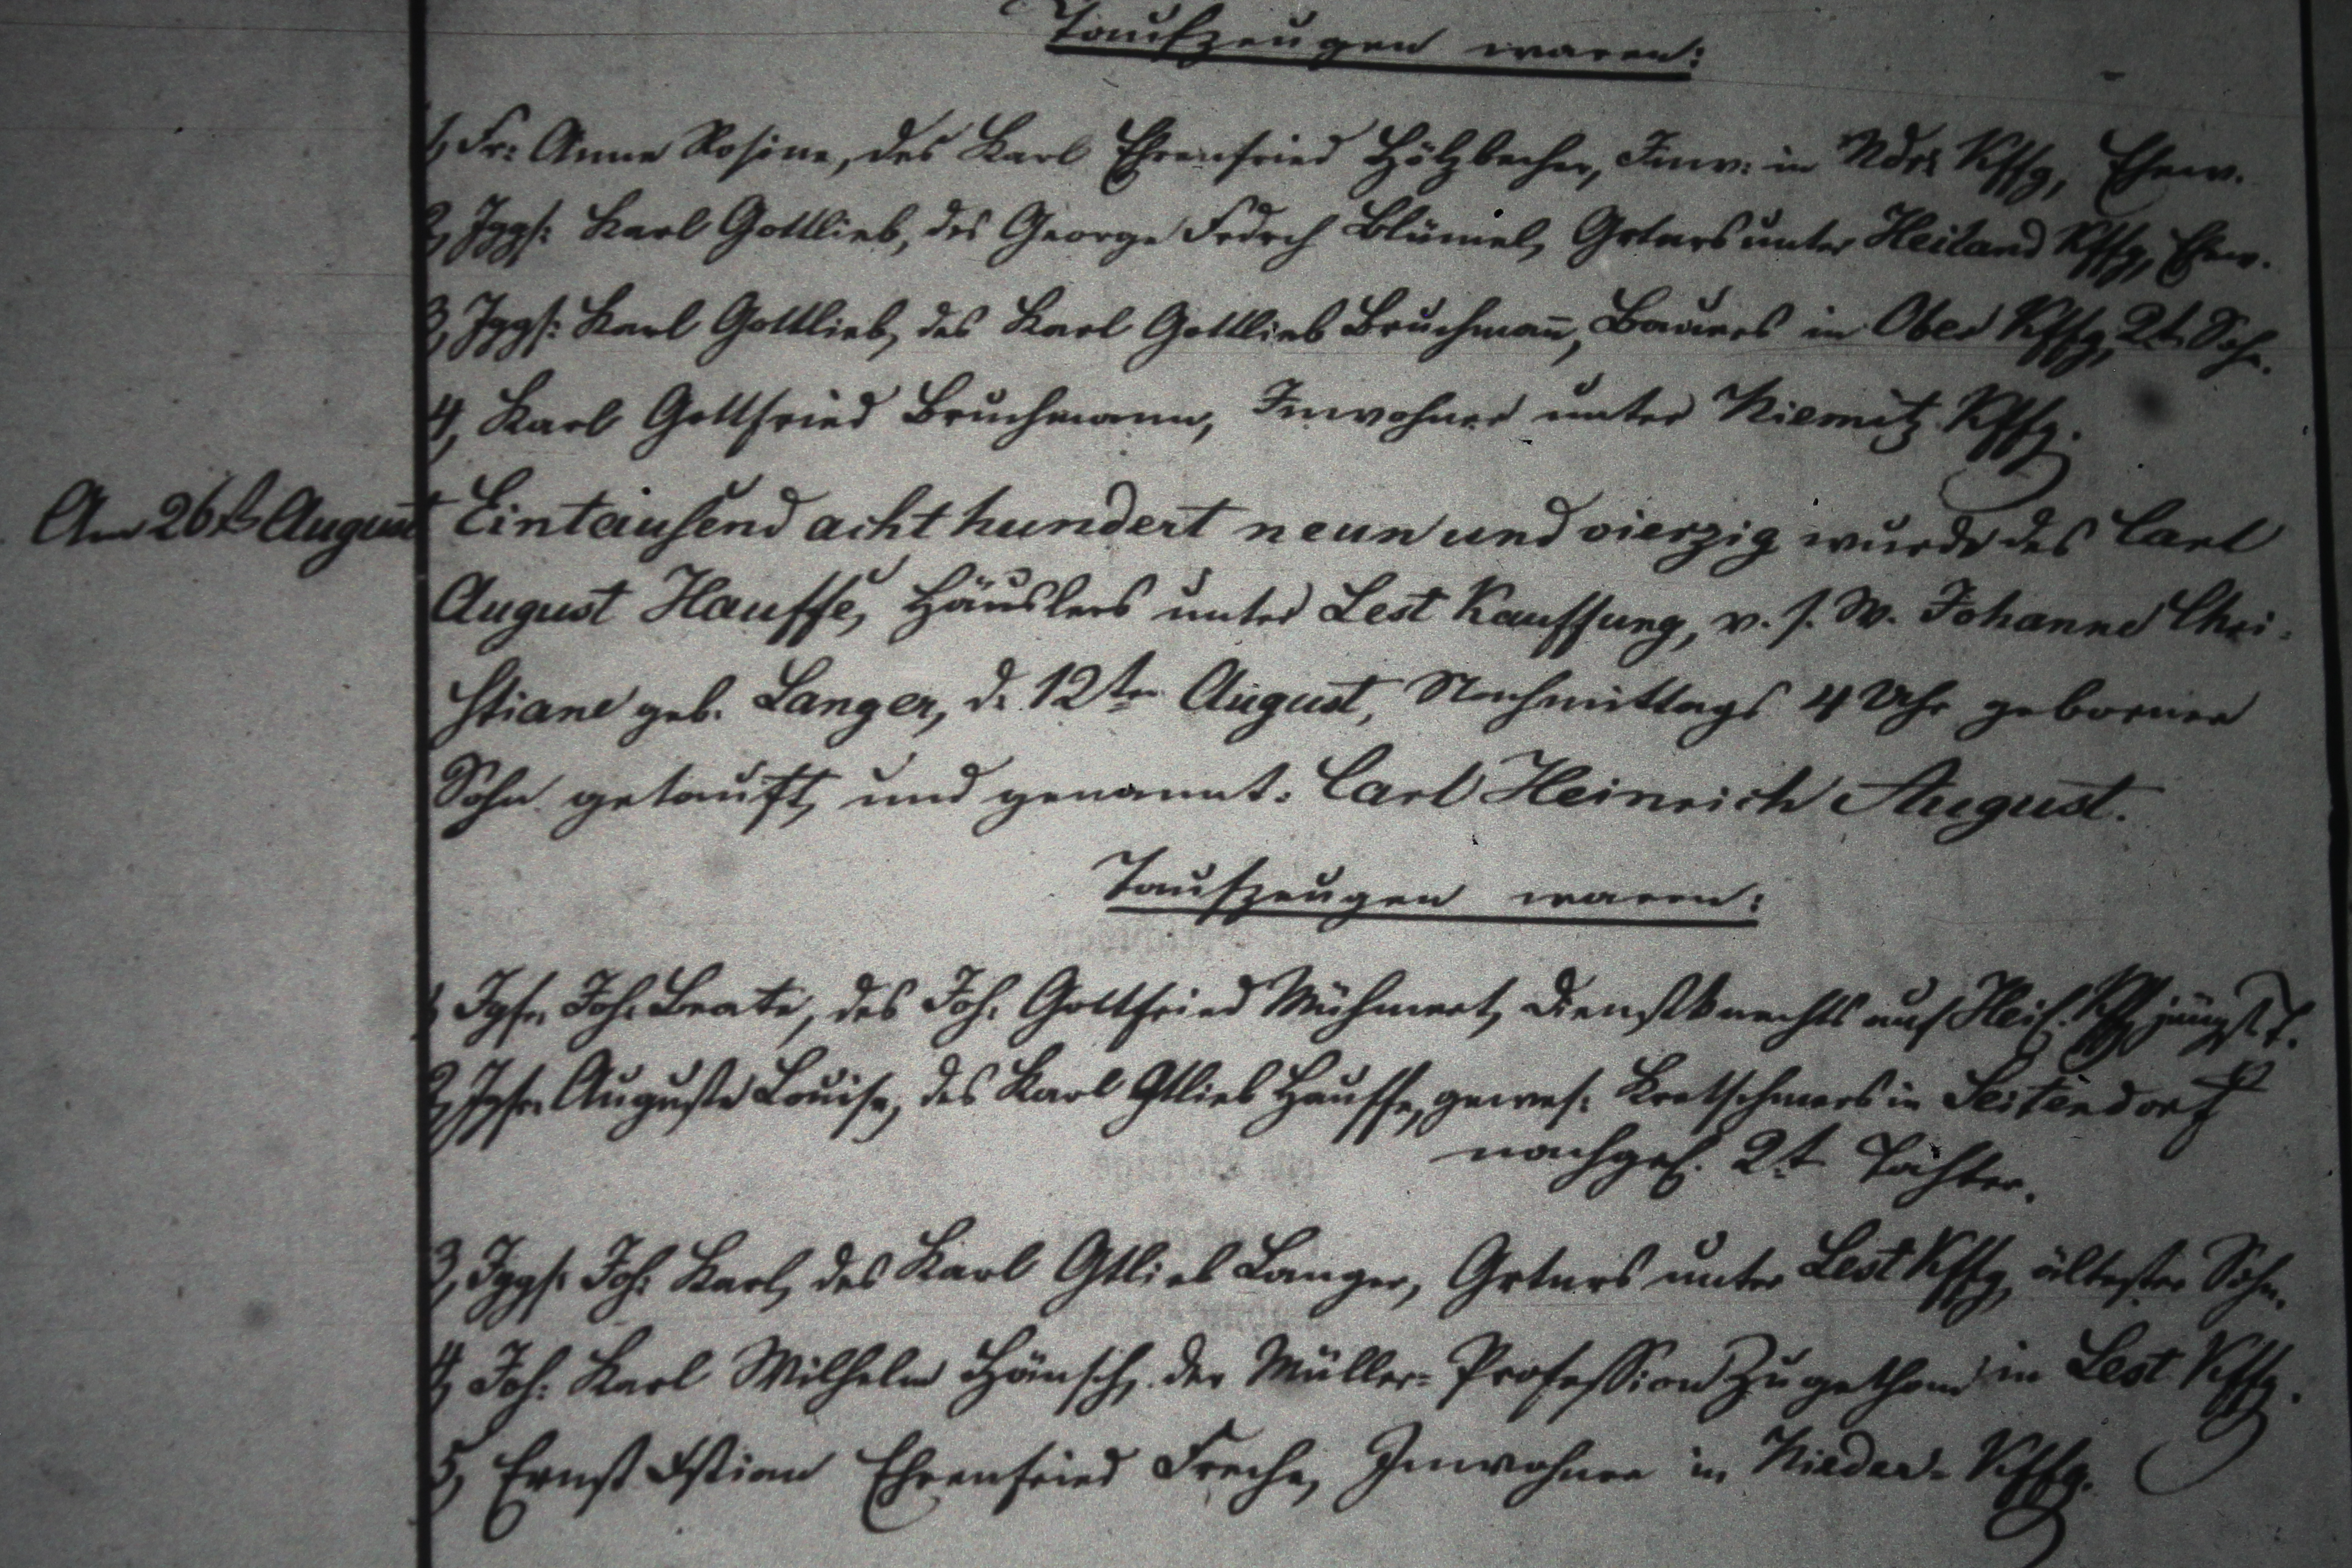 Taufzeugen waren:
1, Fr: Anne Rosine, des Karl Ehrenfried Hölzbecher, Inw: in Ndr: Kffg, Ehew.
2, Jggs: Karl Gottlieb, des George Frdrch Blümel, Grtnrs unter Heiland Kffg,
3, Jggs: Karl Gottlieb, des Karl Gottlieb Bruchmañ, Bauers in Ober Kffg, 2t. Sohn.
4, Karl Gottfried Bruchmann, Inwohner unter Niemitz Kffg.
Am 26t. August Eintausend achthundert neun und vierzig wurde des Carl
August Hauffe, Häuslers unter Lest Kauffung, v. s. W. Johanne Chri-
stiane geb. Langer, d. 12ten August, Nachmittags 4 Uhr geborner
Sohn getauft, und genannt: Carl Heinrich August.
Taufzeugen waren:
1, Jgfr. Joh: Beate, des Joh: Gottfried Mühmert, Dienstknechts auf Heil. Kffg jüngst. T.
2, Jgfr. Auguste Louise, des Karl Gtlieb Hauffe, gewes: Kretschmers in Seitendorf
nachgel. 2t. Tochter.
3, Jggs: Joh: Karl, des Karl Gtlieb Langer, Grtnrs unter Lest Kffg, ältester Sohn.
4, Joh: Karl Wilhelm Hänsch, der Müller-Profession zugethan in Lest Kffg.
5, Ernst Xstian Ehrenfried Freche, Inwohner in Nieder-Kffg.